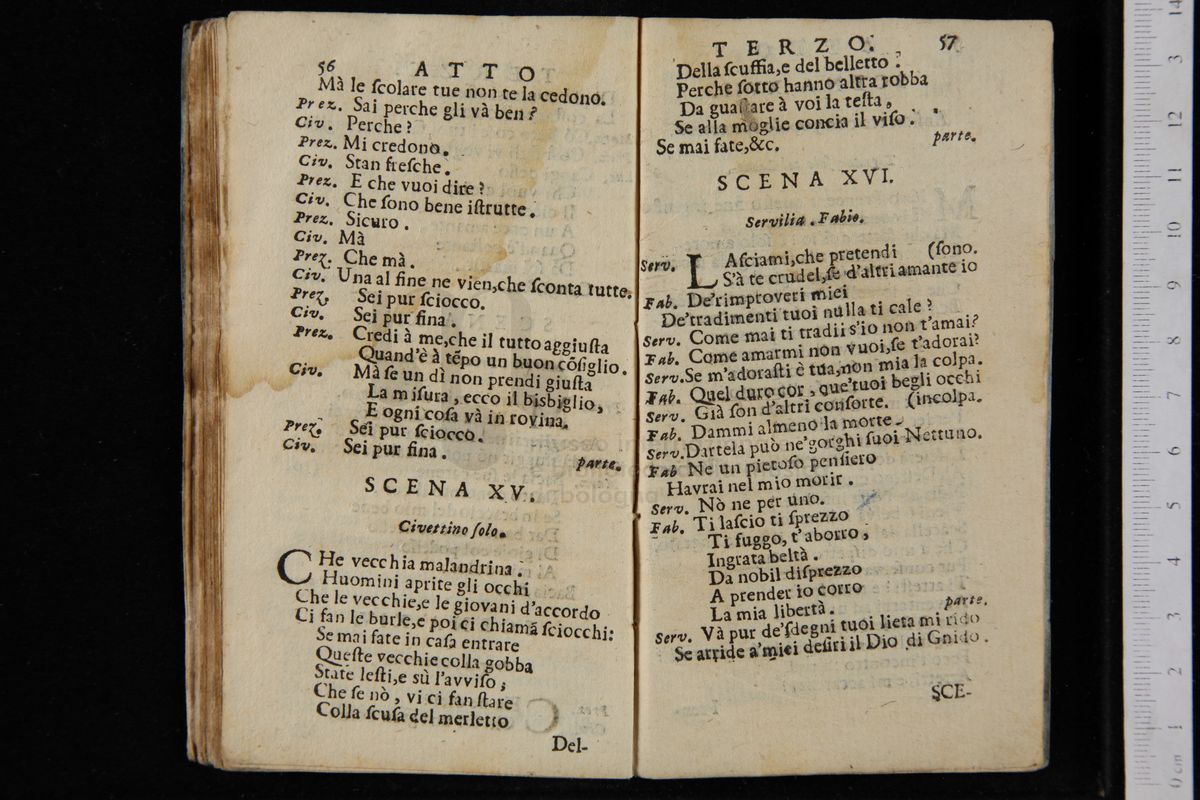 56 ATTO
Mà le ſcolare tue non te la cedono.
Prez. Sai perche gli và ben?
Civ. Perche?
Prez. Mi credono.
Civ. Stan freſche.
Prez. E che vuoi dire?
Civ. Che ſono bene iſtrutte.
Prez. Sicuro.
Civ. Mà
Prez. Che mà.
Civ. Una al fine ne vien, che ſconta tutte.
Prez. Sei pur ſciocco.
Civ. Sei pur fina.
Prez. Credi à me, che il tutto aggiuſta
Quand'è à tẽpo un buon cõſiglio.
Civ. Mà ſe un dì non prendi giuſta
La miſura, ecco il bisbiglio,
E ogni coſa và in rovina.
Prez. Sei pur ſciocco.
Civ. Sei pur fina. parte.
SCENA XV.
Civettino ſolo.
CHe vecchia malandrina.
Huomini aprite gli occhi
Che le vecchie, e le giovani d'accordo
Ci fan le burle, e poi ci chiamã ſciocchi:
Se mai fate in caſa entrare
Queſte vecchie colla gobba
State leſti, e sù l'avviſo;
Che ſe nò, vi ci fan ſtare
Colla ſcuſa del merletto
Del-
TERZO. 57
Della ſcuffia, e del belletto:
Perche ſotto hanno altra robba
Da guaſtare à voi la teſta,
Se alla moglie concia il viſo.
Se mai fate, &c. parte.
SCENA XVI.
Servilia. Fabio.
Serv. LAſciami, che pretendi (ſono.
S'à te crudel, ſe d'altri amante io
Fab. De'rimproveri miei
De'tradimenti tuoi nulla ti cale?
Serv. Come mai ti tradii s'io non t'amai?
Fab. Come amarmi non vuoi, ſe t'adorai?
Serv. Se m'adoraſti è tua, non mia la colpa.
Fab. Quel duro cor, que'tuoi begli occhi
Serv. Già ſon d'altri conforte. (incolpa.
Fab. Dammi almeno la morte.
Serv. Dartela può ne'gorghi ſuoi Nettuno.
Fab Ne un pietoſo penſiero
Havrai nel mio morir.
Serv. Nò ne per uno.
Fab. Ti laſcio ti ſprezzo
Ti fuggo, t'aborro,
Ingrata beltà.
Da nobil diſprezzo
A prender io corro
La mia libertà. parte.
Serv. Và pur de'ſdegni tuoi lieta mi rido
Se arride a'miei deſiri il Dio di Gnido.
SCE-